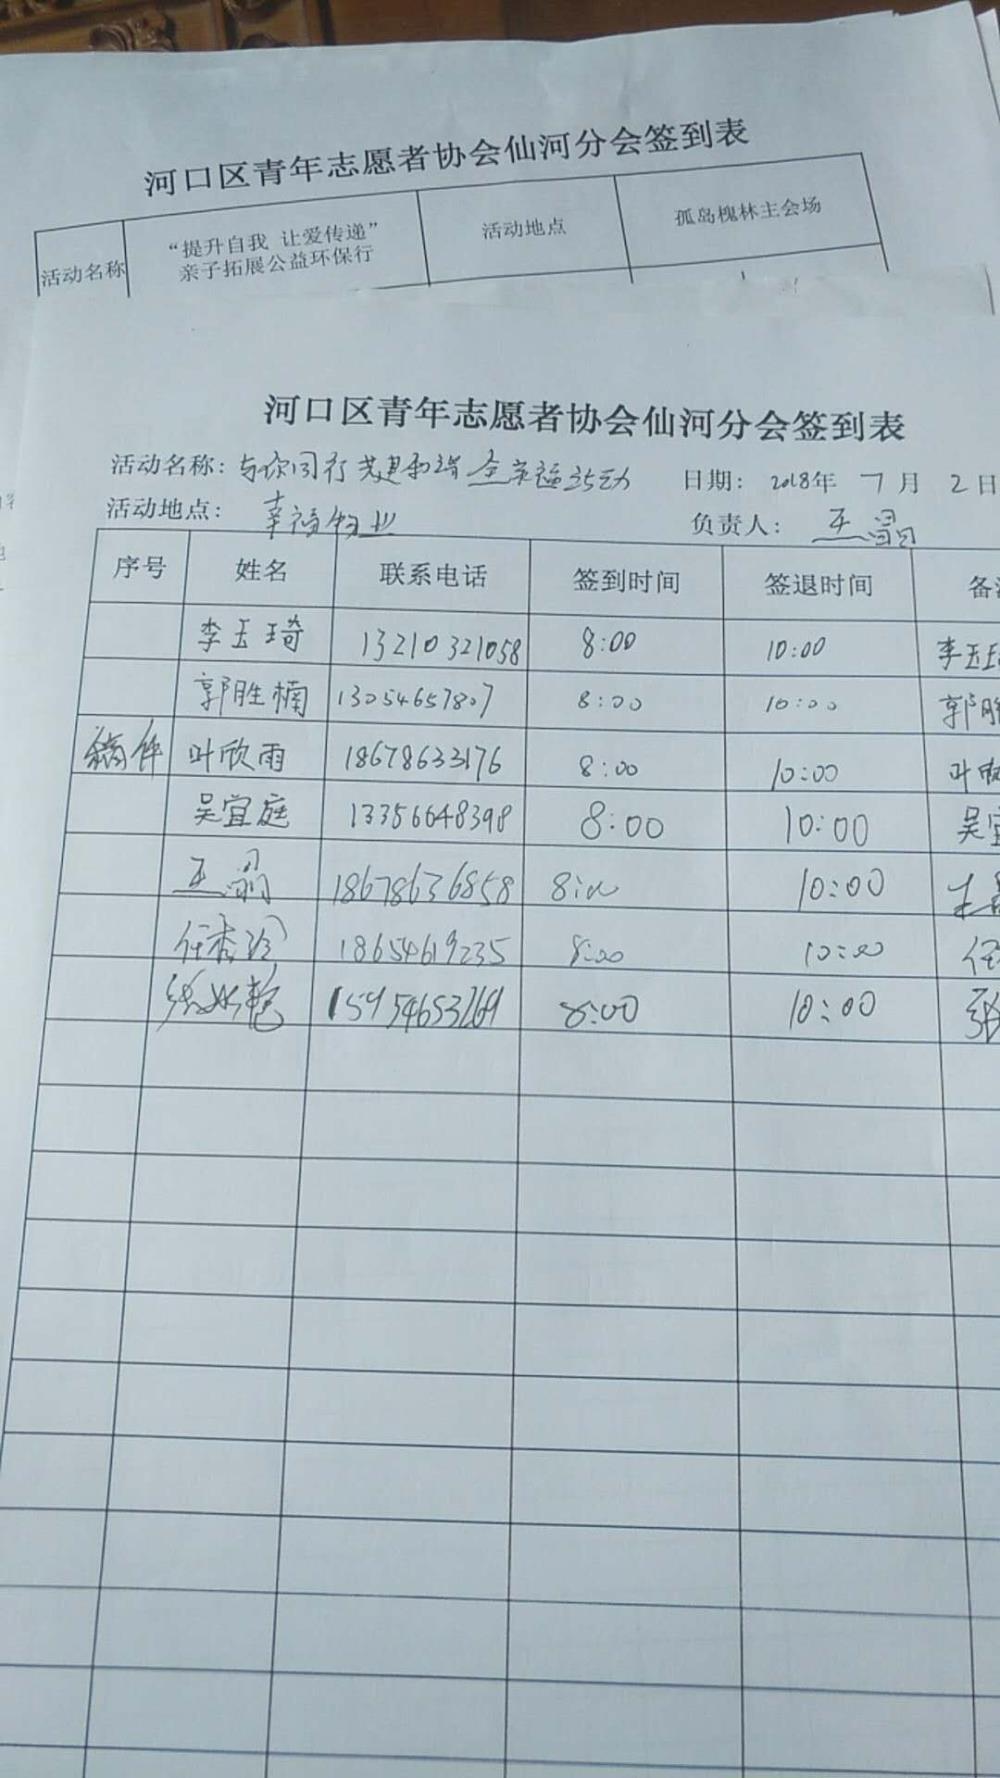 河口区青年志愿者协会仙河分会签到表
活动名称 “提升自我 让爱传递” 活动地点 孤岛槐林主会场
亲子拓展公益环保行
河口区青年志愿者协会仙河分会签到表
活动名称: 与你同行 共建和谐 日期: 2018年 7月 2日
活动地点: 幸福物业 负责人: 王
序号 姓名 联系电话 签到时间 签退时间 备
李玉琦 13210321058 8:00 10:00 李玉琦
郭胜楠 13054657807 8:00 10:00 郭胜
叶欣雨 18678633176 8:00 10:00 叶欣
吴宜庭 13356648398 8:00 10:00 吴宜
王 18678636858 8:00 10:00 王
任秀玲 18654619235 8:00 10:00 任
张 15954653769 8:00 10:00 张